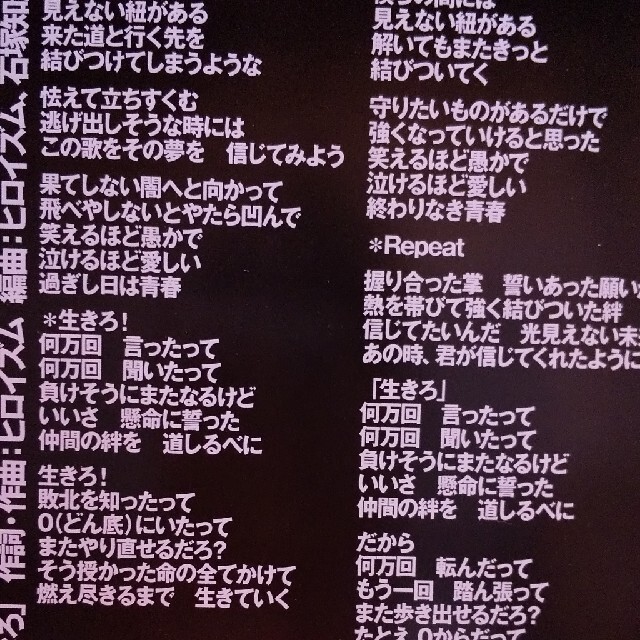 ろ」 作詞・作曲：ヒロイズム 編曲：ヒロイズム、石塚知
見えない紐がある
来た道と行く先を
結びつけてしまうような
怯えて立ちすくむ
逃げ出しそうな時には
この歌をその夢を　信じてみよう
果てしない闇へと向かって
飛べやしないとやたら凹んで
笑えるほど愚かで
泣けるほど愛しい
過ぎし日は青春
＊生きろ！
何万回　言ったたって
何万回　聞いたって
負けそうにまたなるけど
いいさ　懸命に誓った
仲間の絆を　道しるべに
生きろ！
敗北を知ったって
0（どん底）にいたって
またやり直せるだろ？
そう授かった命の全てかけて
燃え尽きるまで　生きていく
の間には
見えない紐がある
解いてもまたきっと
結びついてく
守りたいものがあるだけで
強くなっていけると思った
笑えるほど愚かで
泣けるほど愛しい
終わりなき青春
＊Repeat
握り合った掌　誓いあった願い
熱を帯びて強く結びついた絆
信じてたいんだ　光見えない未
あの時、君が信じてくれたように
「生きろ」
何万回　言ったって
何万回　聞いたって
負けそうにまたなるけど
いいさ　懸命に誓った
仲間の絆を　道しるべに
だから
何万回　転んだって
もう一回　踏ん張って
また歩き出せるだろ？
たとえ 0からだって